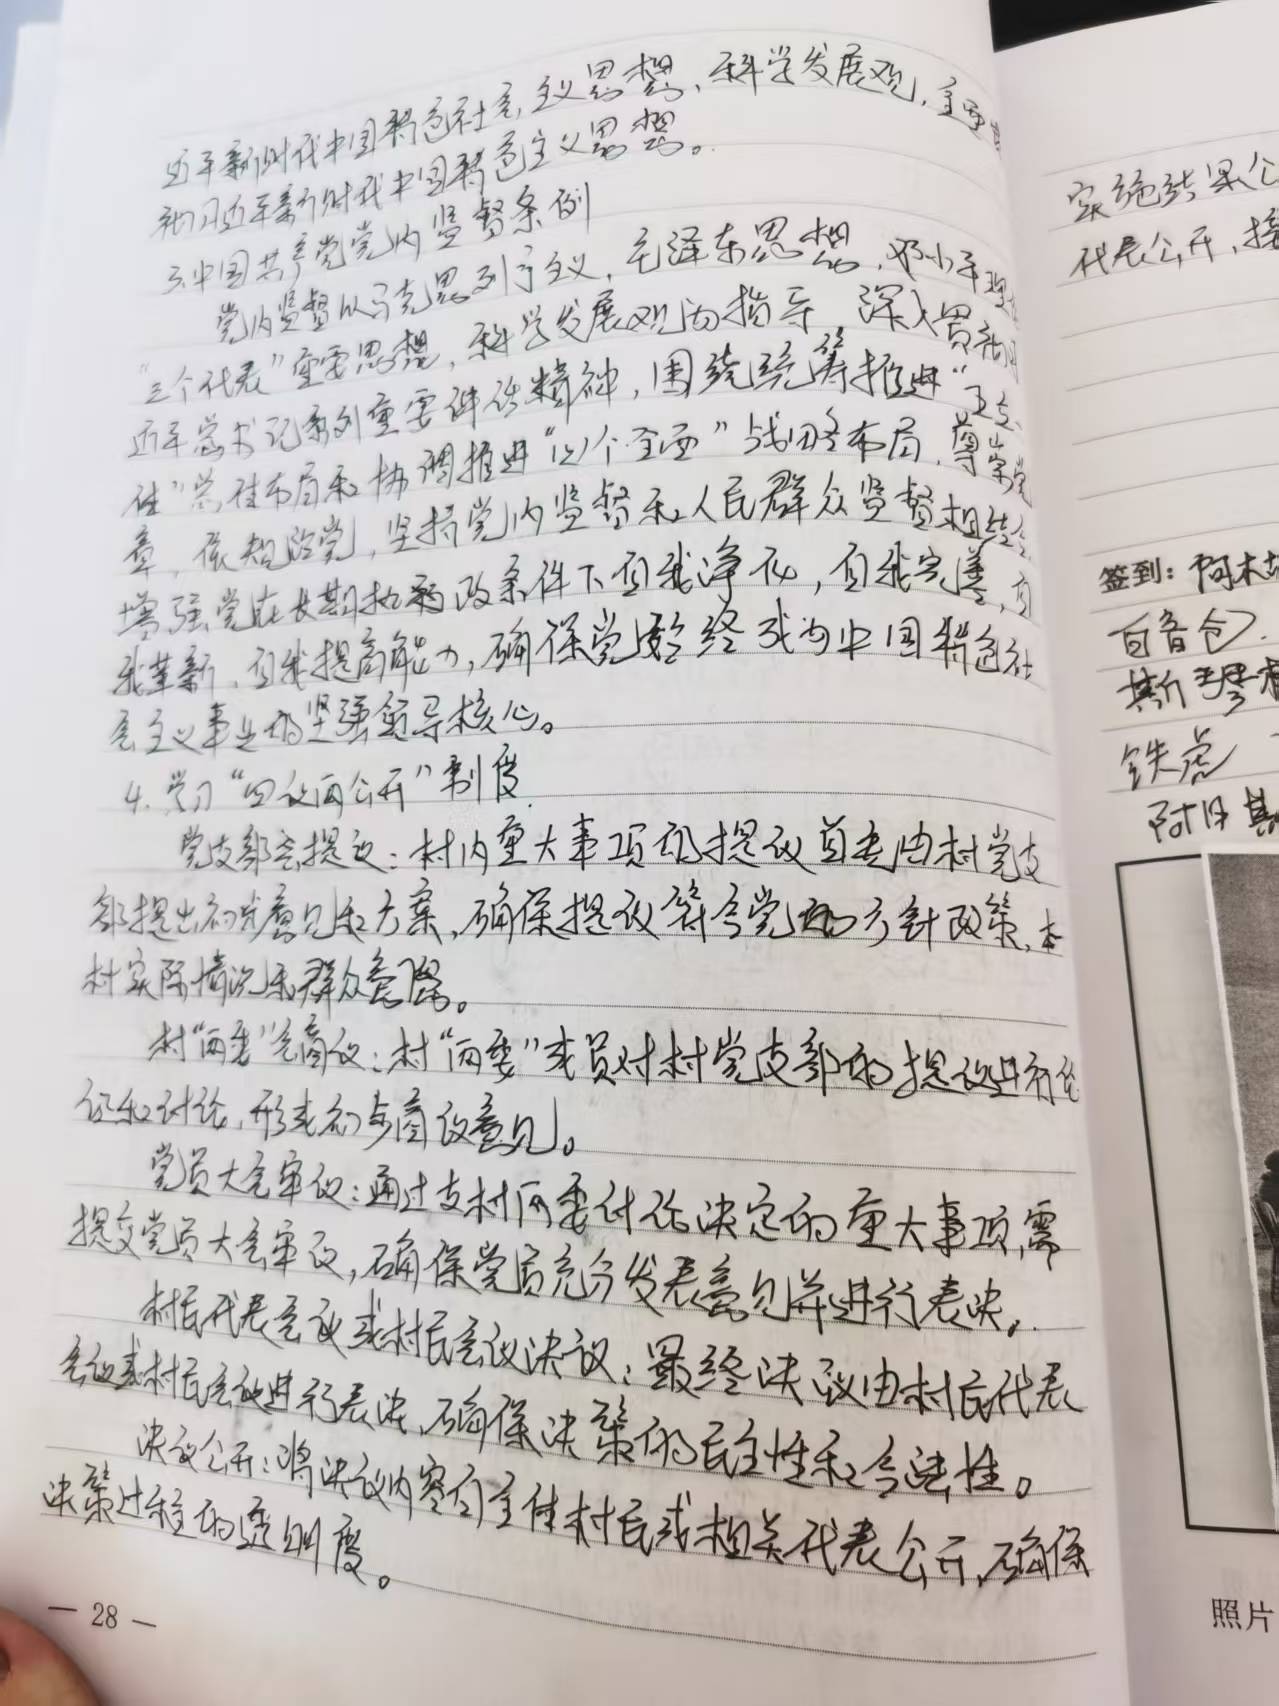 近平新时代中国特色社会主义思想,科学发展观,主要
和习近平新时代中国特色主义思想。
3.中国共产党党内监督条例
党内监督以马克思列宁主义,毛泽东思想,邓小平理
"三个代表"重要思想,科学发展观为指导,深入贯彻习
近平总书记系列重要讲话精神,围绕统筹推进"五位
体"总体布局和协调推进"四个全面"战略布局,尊崇党
章,依规治党,坚持党内监督和人民群众监督相结合
增强党在长期执政条件下自我净化,自我完善,自
我革新,自我提高能力,确保党始终成为中国特色社
会主义事业的坚强领导核心。
4.学习"四议两公开"制度
党支部会提议:村内重大事项的提议首先由村党支
部提出初步意见和方案,确保提议符合党的方针政策,本
村实际情况和群众意愿。
村"两委"会商议:村"两委"成员对村党支部的提议进行论
证和讨论,形成初步商议意见。
党员大会审议:通过支村两委讨论决定的重大事项,需
提交党员大会审议,确保党员充分发表意见并进行表决。
村民代表会议或村民会议决议:最终决议由村民代表
会议或村民会议进行表决,确保决策的民主性和合法性。
决议公开:将决议内容向全体村民或相关代表公开,确保
决策过程的透明度。
— 28 —
实施结果公
代表公开,接
签到:阿木
白音仓
斯琴
铁虎
阿日
照片